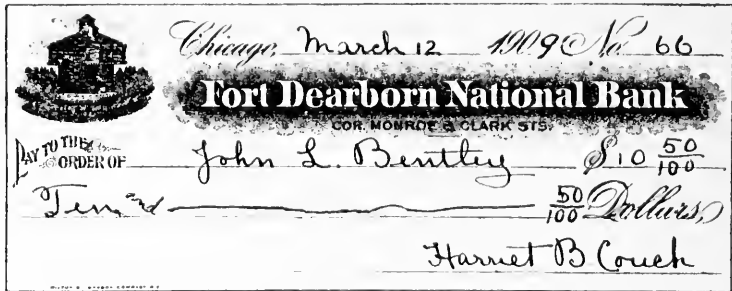 Chicago, March 12 1909 No. 66
Fort Dearborn National Bank
COR. MONROE & CLARK STS.
PAY TO THE
ORDER OF John L. Bentley $10 50/100
Ten and 50/100 Dollars,
Harriet B Couch